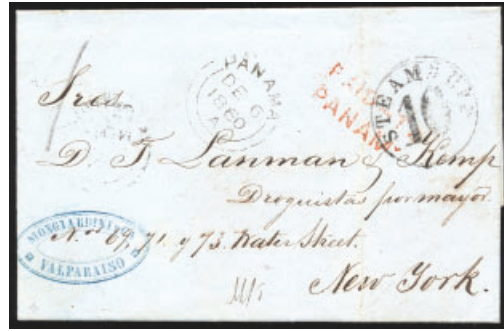 PANAMA
DE 6
1860
A
PAID
PANAMA
STEAMSHIP
10
Sres
D. T. Lanman y Kemp
Droguistas por mayor.
Nos. 69, 71. y 73. Water Street.
New York.
VALPARAISO